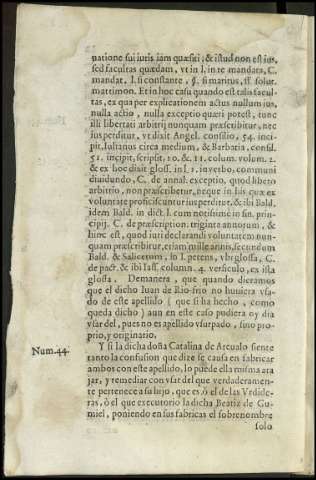 natione sui iuris iam quæsiti, & istud non est ius,
sed facultas quædam, vt in l. in re mandata, C.
mandat. l. si constante, §. si maritus, ff. solut.
matrimon. Et in hoc casu quando est talis facul-
tas, ex qua per explicationem actus nullum ius,
nulla actio, nulla exceptio quæri potest, tunc
illi libertati arbitrij nunquam præscribitur, nec
ius perditur, vt dixit Angel. consilio, 54. inci-
pit, Iulianus circa medium, & Barbatia, consil.
51. incipit, scripsit, 10. & 11. colum. volum. 2.
& ex hoc dixit gloss. in l. 1. in verbo, communi
diuidundo, C. de annal. exceptio, quod libero
arbitrio, non præscribetur, neque in his quæ ex
voluntate proficiscuntur ius perditur, & ibi Bald.
idem Bald. in dict. l. cum notissimi in fin. princi-
pij, C. de præscription. triginta annorum, &
hinc est, quod iuri declarandi voluntatem nun-
quam præscribitur, etiam mille annis, secundum
Bald. & Salicetum, in l. petens, vbi glossa, C.
de pact. & ibi Iass. column. 4. versiculo, ex ista
glossa. Demanera, que quando dieramos
que el dicho Iuan de Rio-frio no huuiera vsa-
do de este apellido (que si ha hecho, como
queda dicho) aun en este caso pudiera oy dia
vsar del, pues no es apellido vsurpado, sino pro-
prio, y originario.
Num. 44. Y si la dicha doña Catalina de Areualo siente
tanto la confusion que dize se causa en fabricar
ambos con este apellido, lo puede ella misma ata
jar, y remediar con vsar del que verdaderamen-
te pertenece a su hijo, que es, ò el de las Vrdide-
ras, ò el que executorio la dicha Beatiz de Gu-
miel, poniendo en sus fabricas el sobrenombre
solo